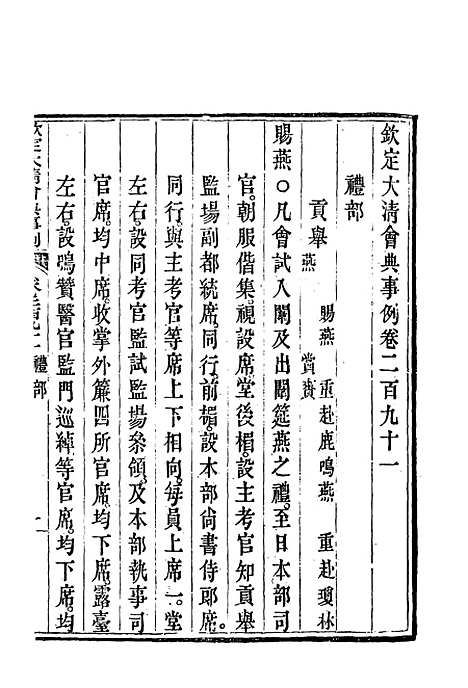 欽定大清會典事例卷二百九十一
禮部
貢舉 賜燕 重赴鹿鳴燕 重赴瓊林
燕 賞賚
賜燕○凡會試入闈及出闈筵燕之禮。至日本部司
官。朝服偕集。視設席。堂後楣。設主考官知貢舉
監場副都統席。同行。前楣。設本部尚書侍郎席。
同行。與主考官等席上下相向。每員上席一。堂
左右。設同考官監試監場參領。及本部執事司
官席。均中席。收掌外簾四所官席。均下席。露臺
左右。設鳴贊醫官監門巡綽等官席。均下席。均
欽定大清會典事例 卷二百九十一 禮部 一